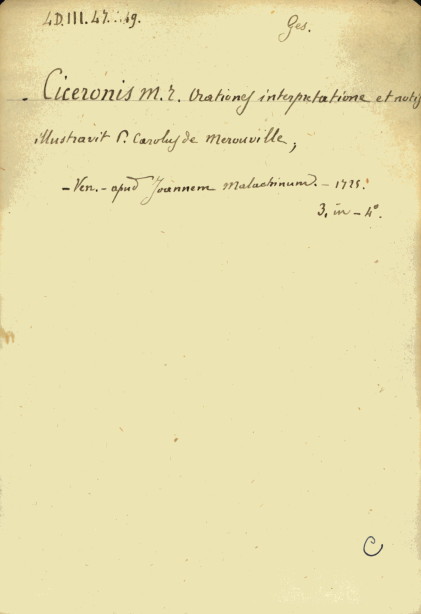 4D.III.47..49.
Ges.
Ciceronis M. T. Orationes interpretatione et notis
illustravit P. Carolus de Merouville;
- Ven. - apud Joannem Malachinum. - 1725.
3. in - 4°.
C